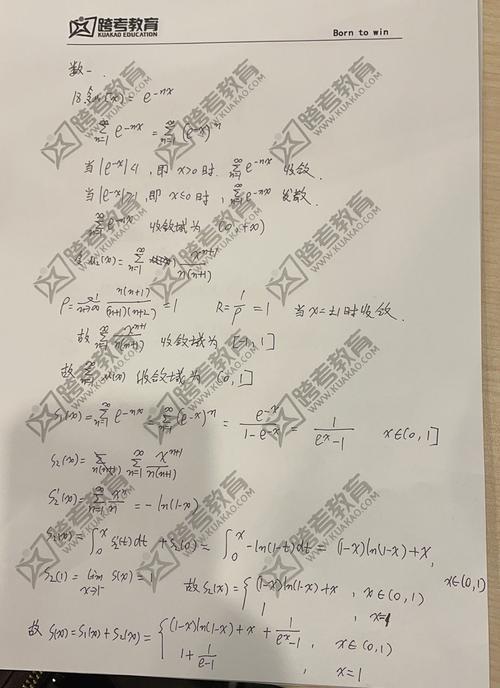 跨考教育
KUAKAO EDUCATION
Born to win
数一.
18. 令u₁(x) = e^{-nx}
∑_{n=1}^{∞} e^{-nx} = ∑_{n=1}^{∞} (e^{-x})^n
当 |e^{-x}|<1, 即 x>0时, ∑_{n=1}^{∞} e^{-nx} 收敛.
当 |e^{-x}|≥1, 即 x≤0时, ∑_{n=1}^{∞} e^{-nx} 发散.
∑_{n=1}^{∞} e^{-nx} 收敛域为 (0,+∞)
令u₂(x) = ∑_{n=1}^{∞} x^{n+1}/n(n+1)
ρ = lim_{n→∞} n(n+1)/(n+1)(n+2) = 1 R = 1/ρ = 1 当 x=±1时收敛.
故 ∑_{n=1}^{∞} x^{n+1}/n(n+1) 收敛域为 [-1,1]
故 ∑_{n=1}^{∞} u(x) 收敛域为 (0,1]
S₁(x) = ∑_{n=1}^{∞} e^{-nx} = ∑_{n=1}^{∞} (e^{-x})^n = e^{-x}/(1-e^{-x}) = 1/(e^x-1) x∈(0,1]
S₂(x) = ∑_{n=1}^{∞} x^{n+1}/n(n+1)
S₂'(x) = ∑_{n=1}^{∞} x^n/n = -ln(1-x)
S₂(x) = ∫_0^x S₂'(t)dt + S₂(0) = ∫_0^x -ln(1-t)dt = (1-x)ln(1-x)+x, x∈(0,1)
S₂(1) = lim_{x→1⁻} S(x) = 1 故 S₂(x) = { (1-x)ln(1-x)+x, x∈(0,1)
1, x=1
故 S(x) = S₁(x)+S₂(x) = { (1-x)ln(1-x)+x+1/(e^x-1), x∈(0,1)
1+1/(e-1), x=1